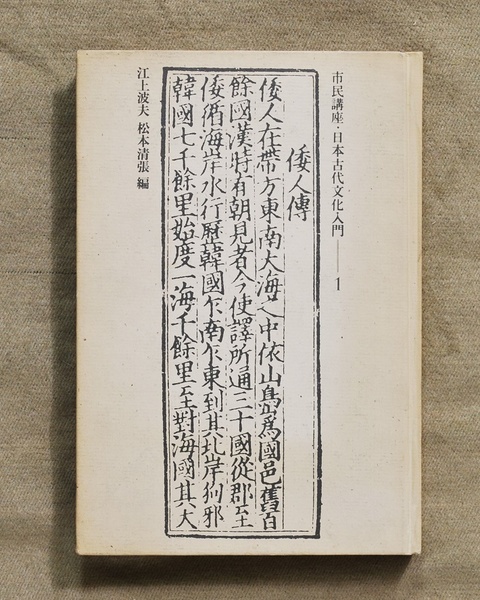 市民講座・日本古代文化入門——1
倭人傳
倭人在帶方東南大海之中依山島爲國邑舊百
餘國漢時有朝見者今使譯所通三十國從郡至
倭循海岸水行歷韓國乍南乍東到其北岸狗邪
韓國七千餘里始度一海千餘里至對海國其大
江上波夫 松本清張 編